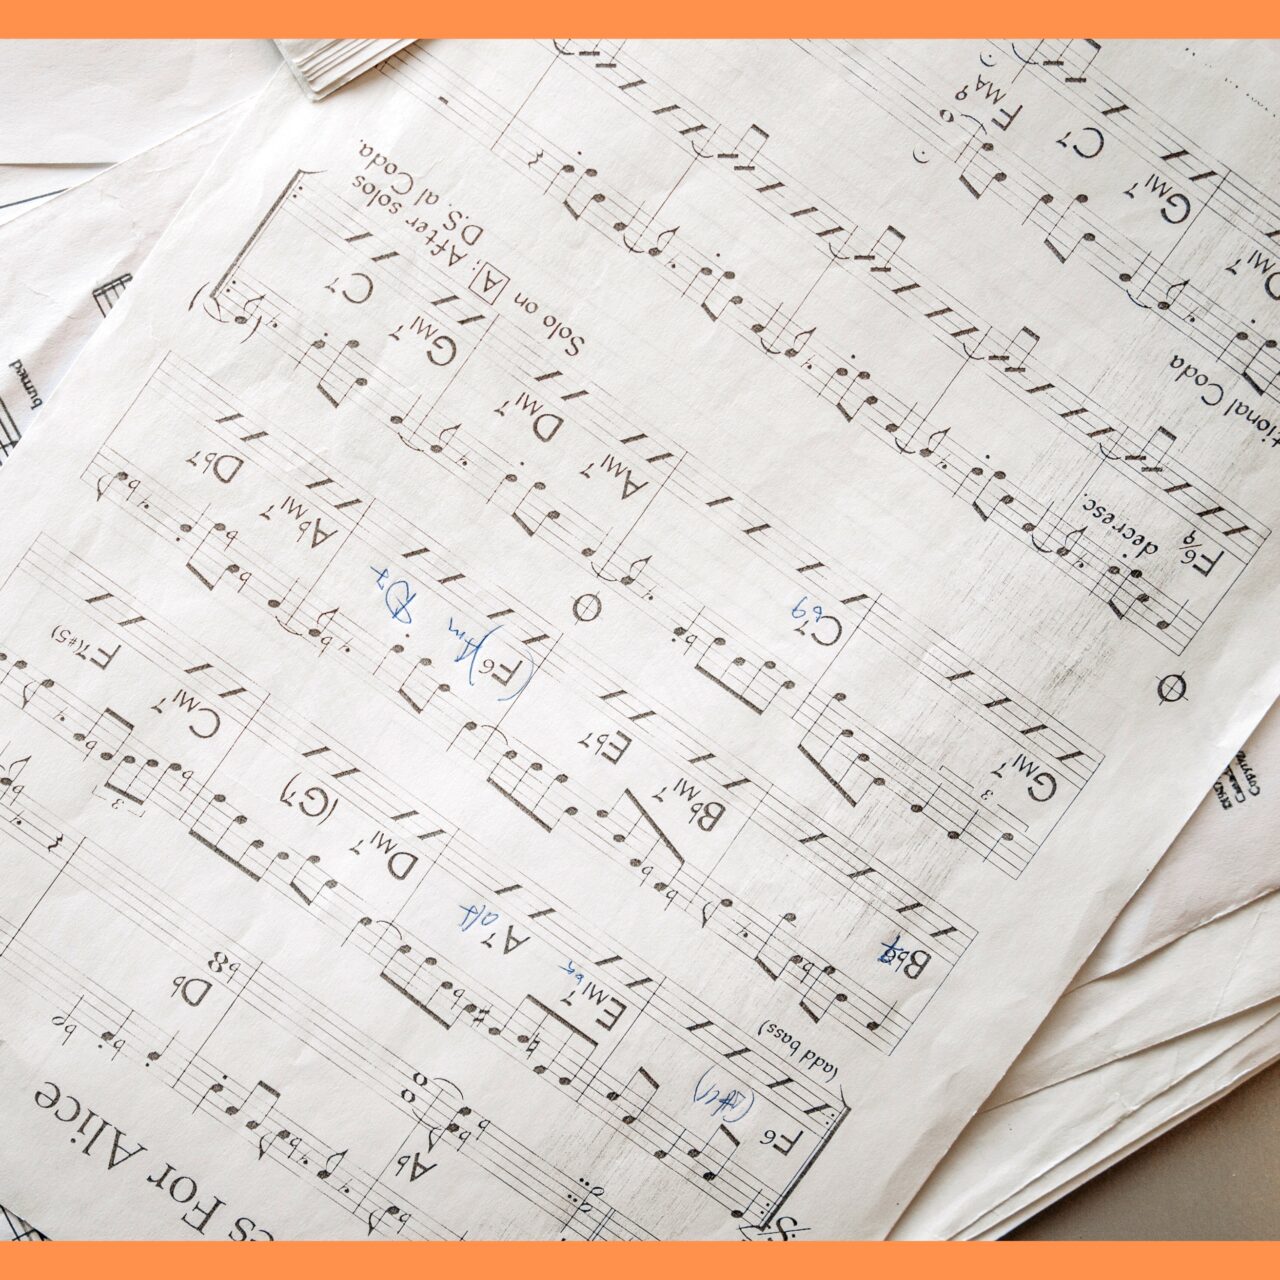 es For Alice
Ab Db
(add bass)
F6 EMI7 b5 A7 alt DMI7 (G7) CMI7 F7(#5)
3
Bb7 BbMI7 Eb7 (F6) Am D7 AbMI7 Db7
GMI7 C7 b9 AMI7 DMI7 GMI7 C7
3
Solo on A; After solos
D.S. al Coda.
F6/9
decresc.
Coda
GMI7 C7 FMA9